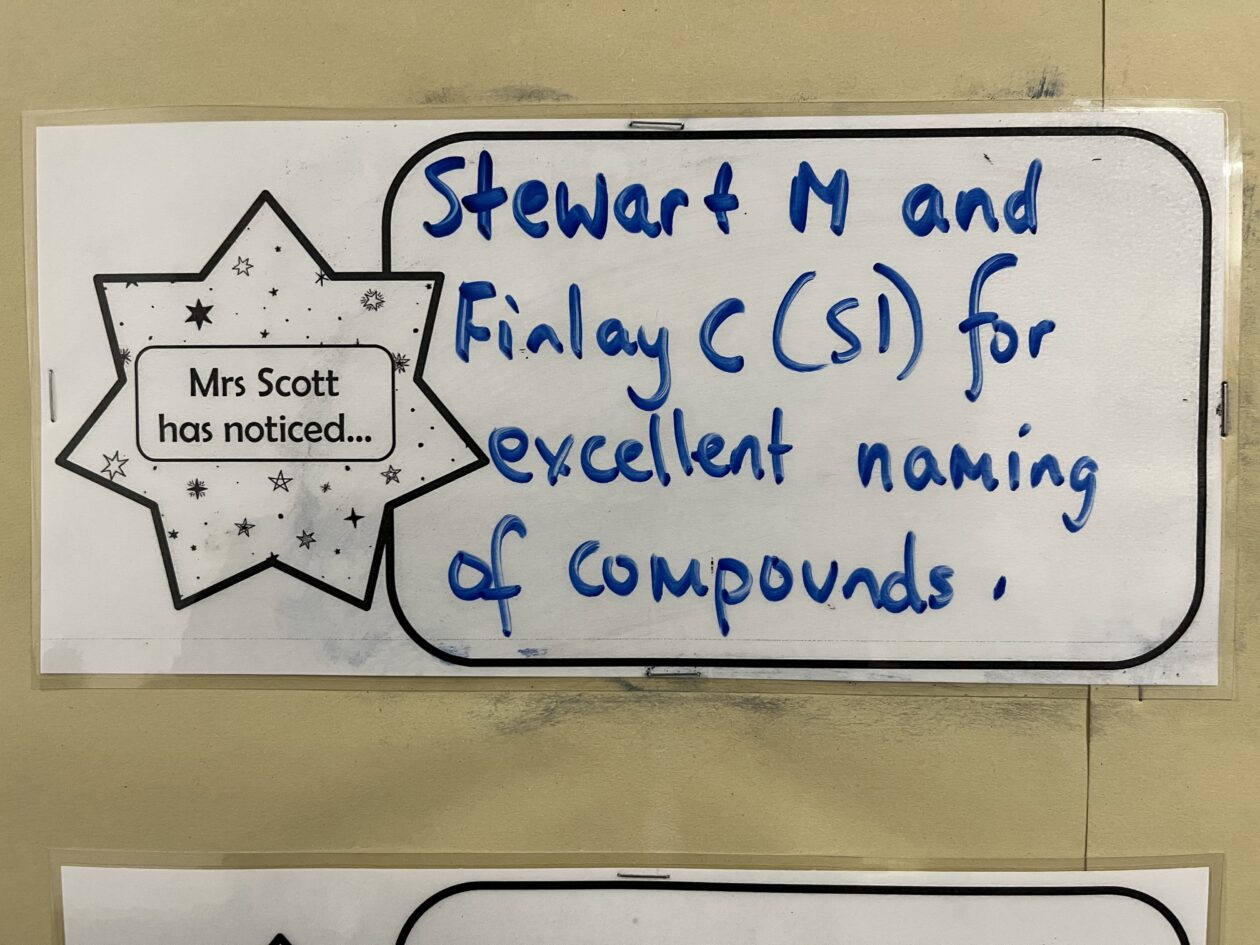 Mrs Scott
has noticed...
Stewart M and
Finlay C (S1) for
excellent naming
of compounds.